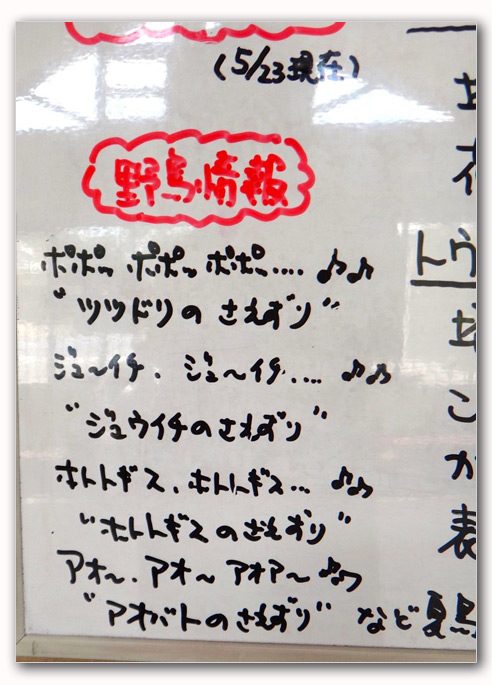 (5/23現在)
野鳥情報
ポポッ ポポッ ポポッ.... ♪♪
"ツツドリのさえずり"
ジュ〜イチ、ジュ〜イチ.... ♪♪
"ジュウイチのさえずり"
ホトトギス、ホトトギス... ♪♪
"ホトトギスのさえずり"
アオ〜、アオ〜 アオア〜 ♪♪
"アオバトのさえずり" など夏鳥
花
トウ
こ
が
表